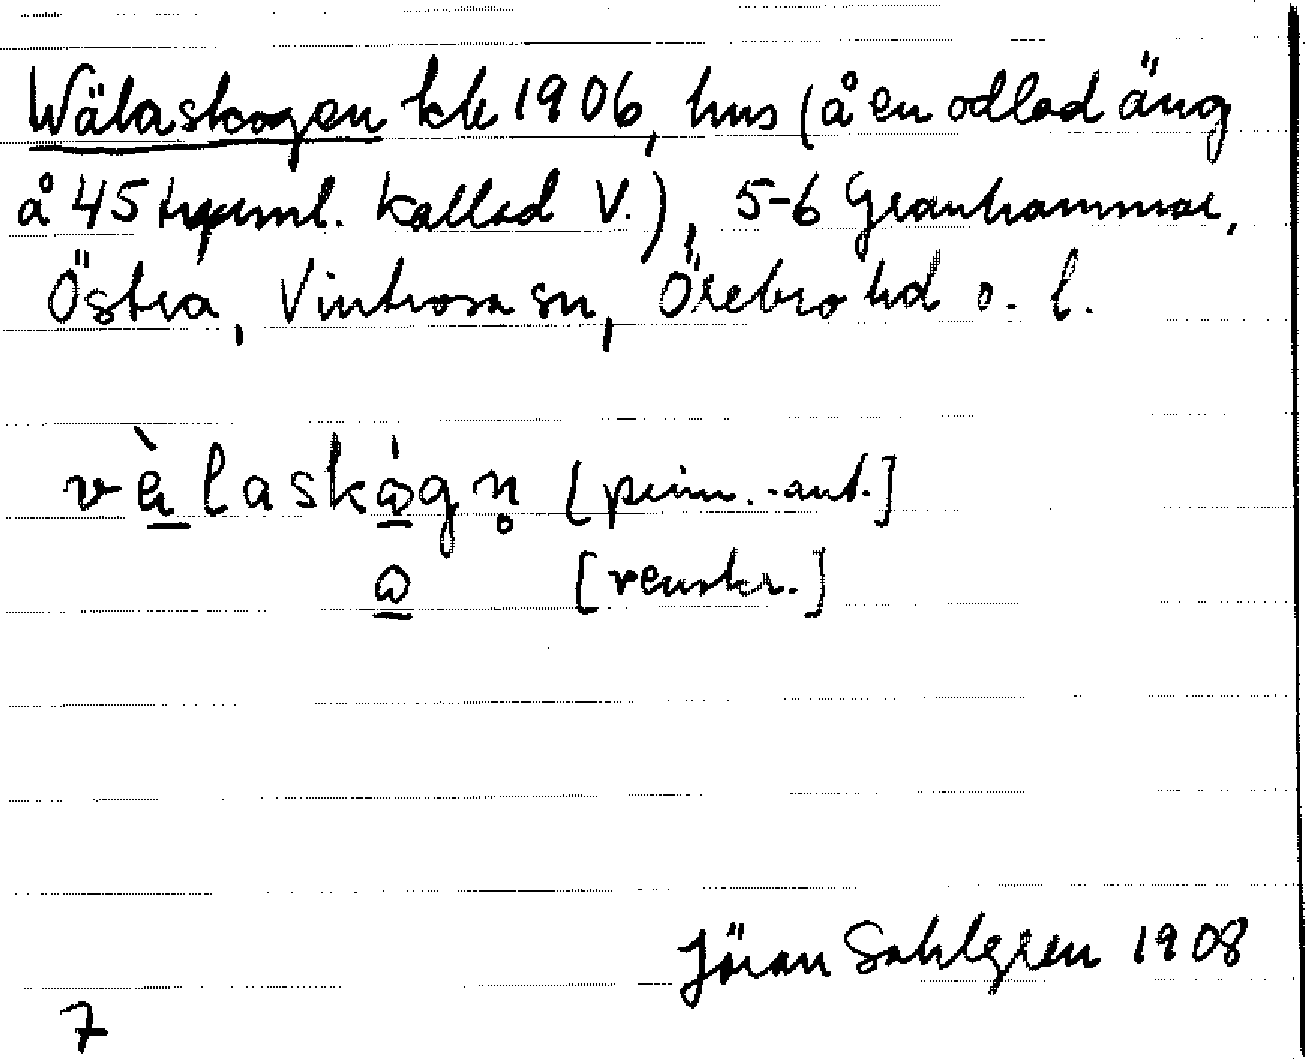 Wälaskogen kk 1906, hus (å en odlad äng
å 45 kallad V.), 5-6 Granhammar,
Östra, Vintrosa sn, Örebro hd o. l.
vὲlaskὡgn̥ [prim.-ant.]
[renskr.]
Jöran Sahlgren 1908
7